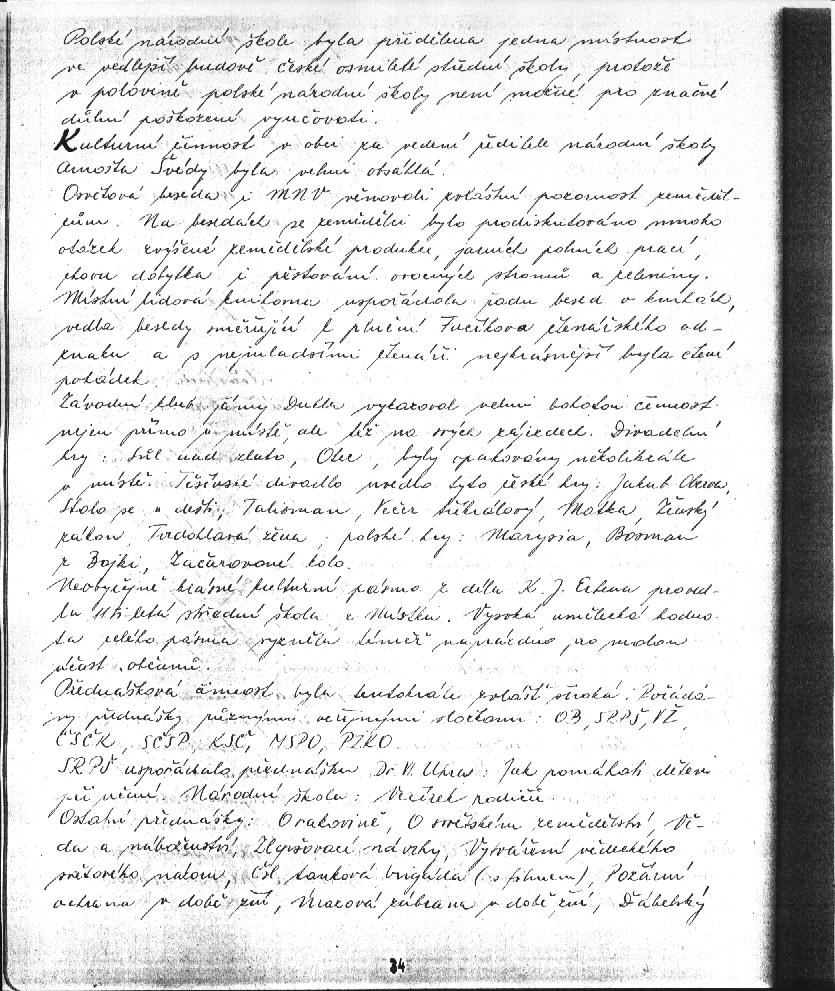 Polské národní škole byla přidělena jedna místnost
ve vedlejší budově české osmileté střední školy, protože
v polovině polské národní školy není možné pro značné
důlní poškození vyučovati.
Kulturní činnost v obci za vedení ředitele národní školy
Arnošta Švédy byla velmi obsáhlá.
Osvětová beseda i MNV věnovali zvláštní pozornost zeměděl-
cům. Na besedách se zemědělci bylo prodiskutováno mnoho
otázek zvýšené zemědělské produkce, jarních polních prací,
stavu dobytka i pěstování ovocných stromů a zeleniny.
Místní lidová knihovna uspořádala řadu besed o knihách,
vedla besedy směřující k plnění Fučíkova čtenářského od-
znaku a s nejmladšími čtenáři nejkrásnější byla čtení
pohádek.
Závodní klub jámy Dukla vykazoval velmi bohatou činnost
nejen přímo v místě, ale též na svých zájezdech. Divadelní
hry: Sůl nad zlato, Otec, byly opakovány několikráte
v místě. Těšínské divadlo uvedlo tyto české hry: Jakub Oberva,
Stalo se v dešti, Talisman, Večer tříkrálový, Matka, Ženský
zákon, Tvrdohlavá žena, polské hry: Marysia, Bosman
z Bajki, Začarované kolo.
Neobyčejně krásné kulturní pásmo z díla K. J. Erbena proved-
la 11ti letá střední škola z Místku. Vysoká umělecká hodno-
ta celého pásma vyzněla téměř naprázdno pro malou
účast občanů.
Přednášková činnost byla tentokráte zvlášť široká. Pořádá-
ny přednášky různými veřejnými složkami: OB, SRPŠ, VŽ,
ČSČK, SČSP, KSČ, MSPO, PZKO.
SRPŠ uspořádalo přednášku Dr Vl. Uhra: Jak pomáhati dětem
při učení. Národní škola: Večírek rodičů.
Ostatní přednášky: O rakovině, O sovětském zemědělství, Vě-
da a náboženství, Zlepšovací návrhy, Vytváření vědeckého
světového názoru, Čsl. tanková brigáda (s filmem), Požární
ochrana v době žní, Úrazová zábrana v době žní, Ďábelský
34